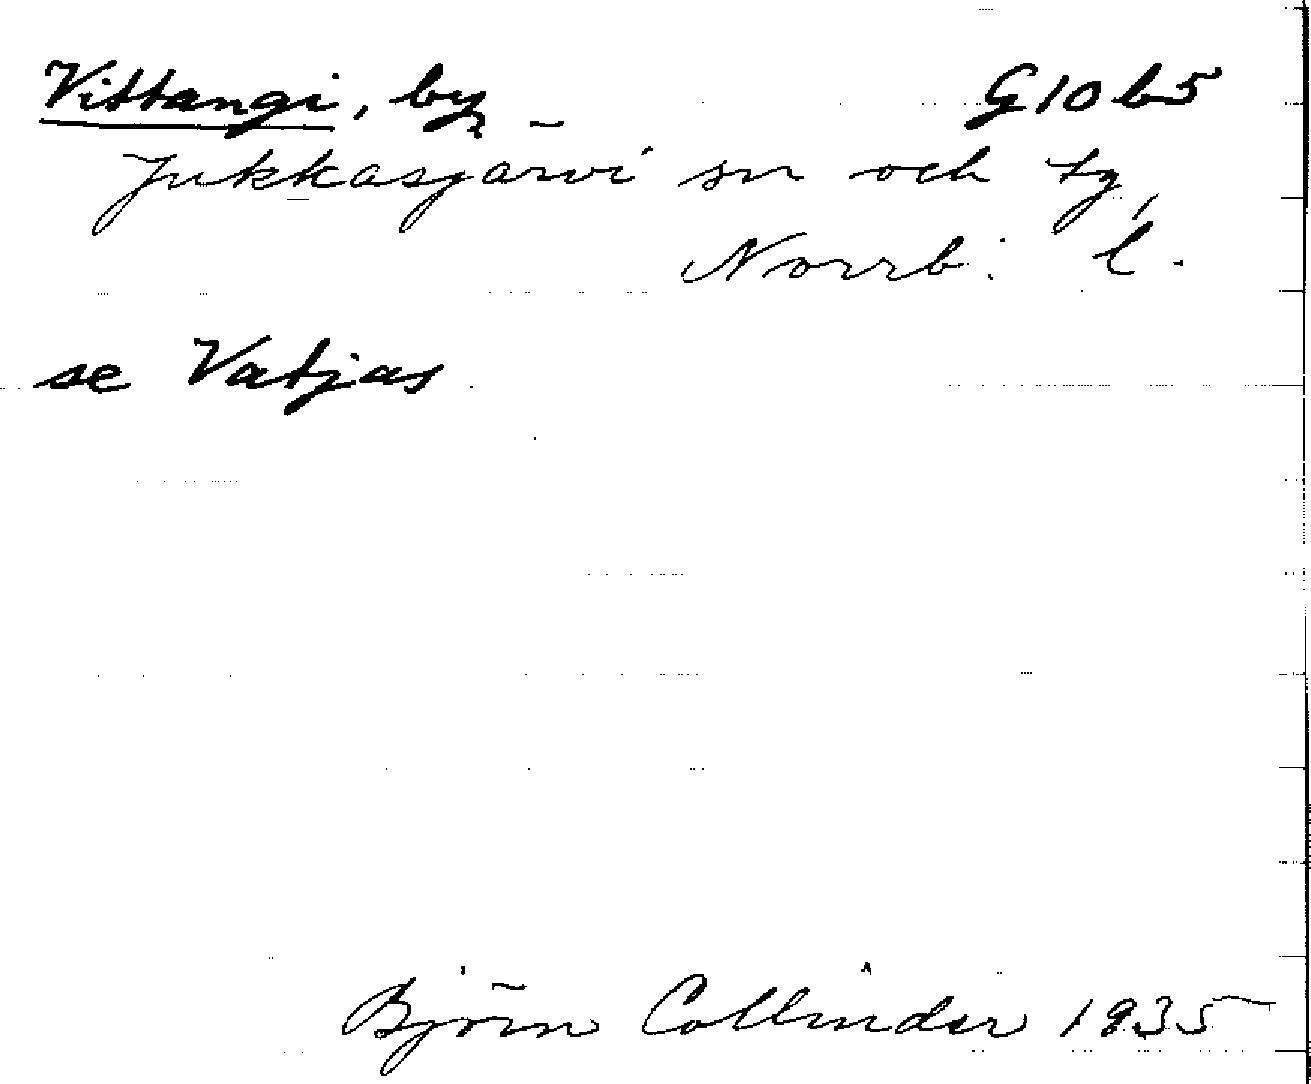 Vittangi, by, G10b5
Jukkasjärvi sn och tg,
Norrb. l.
se Vatjas
Björn Collinder 1935